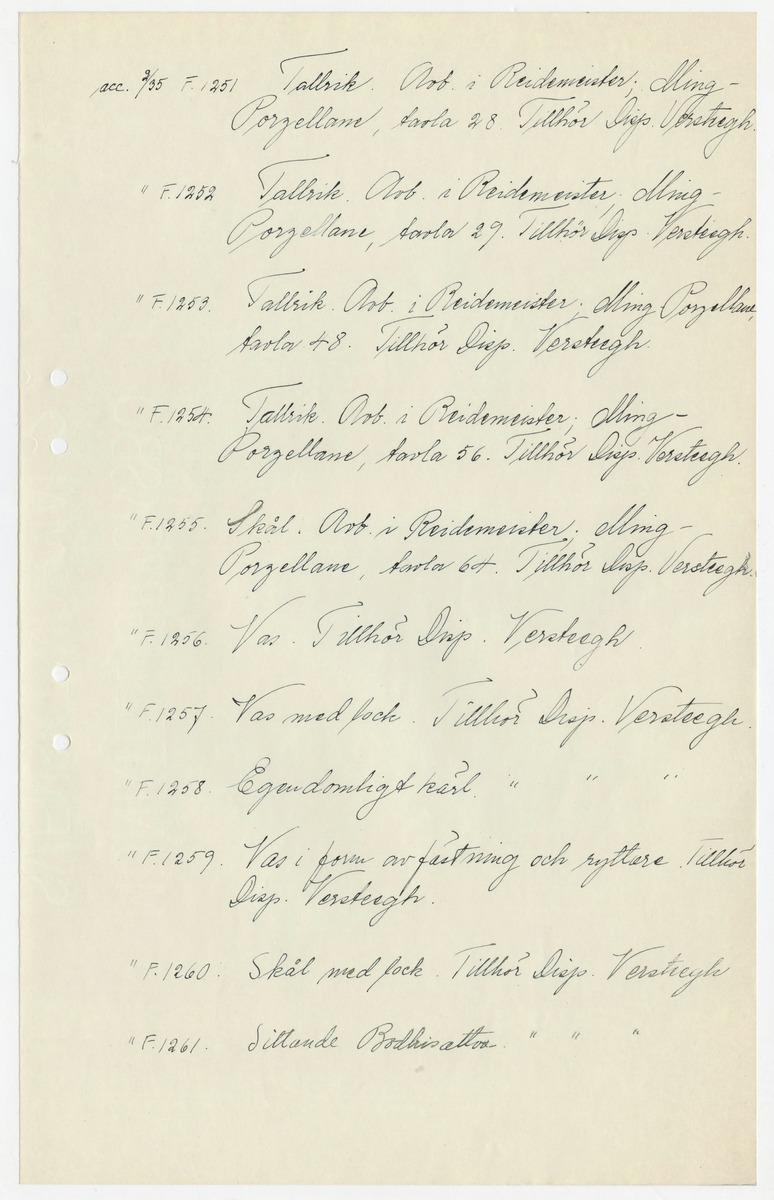 acc. 9/35 F. 1251 Tallrik. Avb. i Reidemeister; Ming-
Porzellane, tavla 28. Tillhör Disp. Versteegh.
" F. 1252 Tallrik. Avb. i Reidemeister; Ming-
Porzellane, tavla 29. Tillhör Disp. Versteegh.
" F. 1253. Tallrik. Avb. i Reidemeister; Ming-Porzellane,
tavla 48. Tillhör Disp. Versteegh.
" F. 1254. Tallrik. Avb. i Reidemeister; Ming-
Porzellane, tavla 56. Tillhör Disp. Versteegh.
" F. 1255. Skål. Avb. i Reidemeister; Ming-
Porzellane, tavla 64. Tillhör Disp. Versteegh.
" F. 1256. Vas. Tillhör Disp. Versteegh.
" F. 1257. Vas med lock. Tillhör Disp. Versteegh.
" F. 1258. Egendomligt kärl. " " "
" F. 1259. Vas i form av fästning och ryttare. Tillhör
Disp. Versteegh.
" F. 1260. Skål med lock. Tillhör Disp. Versteegh
" F. 1261. Sittande Bodhisattva. " " "